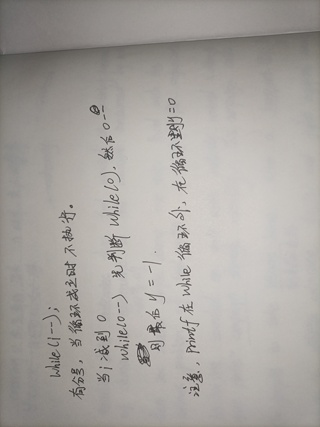 while(i--);
有分号，当循环成立时不执行。
当i减到0
while(0--) 先判断while(0)，然后0--
则最后y=-1.
注意，printf在while循环外，在循环里则y=0